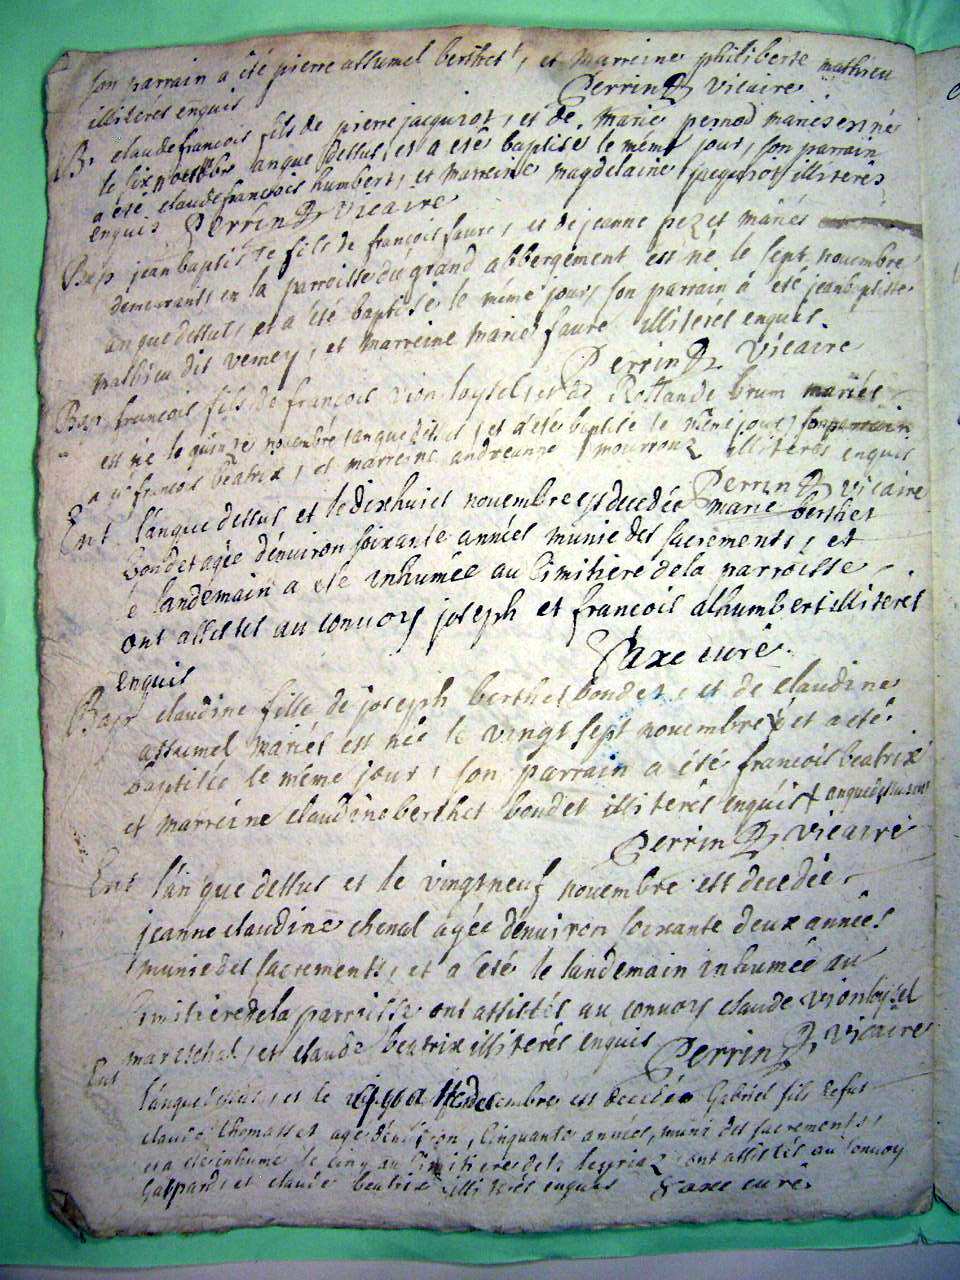 son parrain a été pierre assumel berthet, et marreine philiberte mathieu
illiterés enquis Perrin Vicaire
B. claude françois fils de pierre jacquiot, et de marie pernod mariés est né
le six novembre an que dessus, et a été baptisé le méme jour, son parrain
a été claude françois humbert, et marreine magdelaine jacquiot illiterés
enquis Perrin Vicaire
Bap jean baptiste fils de françois faure, et de jeanne pezet mariés
demeurants en la parroisse du grand abbergement est né le sept novembre
an que dessus, et a été baptisé le méme jour, son parrain a été jean baptiste
mathieu dit verney, et marreine marie faure illiterés enquis.
Perrin Vicaire
Bap françois fils de françois vion loysel, et de Rollande brun mariés
est né le quinze novembre l'an que dessus, et a été baptisé le méme jour, son parrain
a été françois beatrix, et marreine andreanne mourroux illiterés enquis
Perrin Vicaire
Ent. l'an que dessus et le dixhuict novembre est decedée marie berthet
bondet agée d'environ soixante années munie des sacrements, et
le landemain a été inhumée au cimitiere de la parroisse
ont assistés au convoy joseph et françois alhumbert illiterés
enquis Saxe curé.
Bap claudine fille de joseph berthet bondet, et de claudine
assumel mariés est née le vingt sept novembre et a été
baptisée le méme jour, son parrain a été françois beatrix
et marreine claudine berthet bondet illiterés enquis + an que dessus
Perrin Vicaire
Ent l'an que dessus et le vingt neuf novembre est decedée
jeanne claudine chenal agée d'environ soixante deux années
munie des sacrements, et a été le landemain inhumée au
cimitiere de la parroisse ont assistés au convoy claude vion loysel
mareschal, et claude beatrix illiterés enquis Perrin Vicaire
Ent l'an que dessus, et le quatre decembre est decedé Gabriel fils de fut
claude thomasset agé d'environ cinquante années, muni des sacrements,
et a été inhumé le cinq au cimitiere de leyriaz ont assistés au convoy
Gaspard, et claude beatrix illiterés enquis Saxe curé.